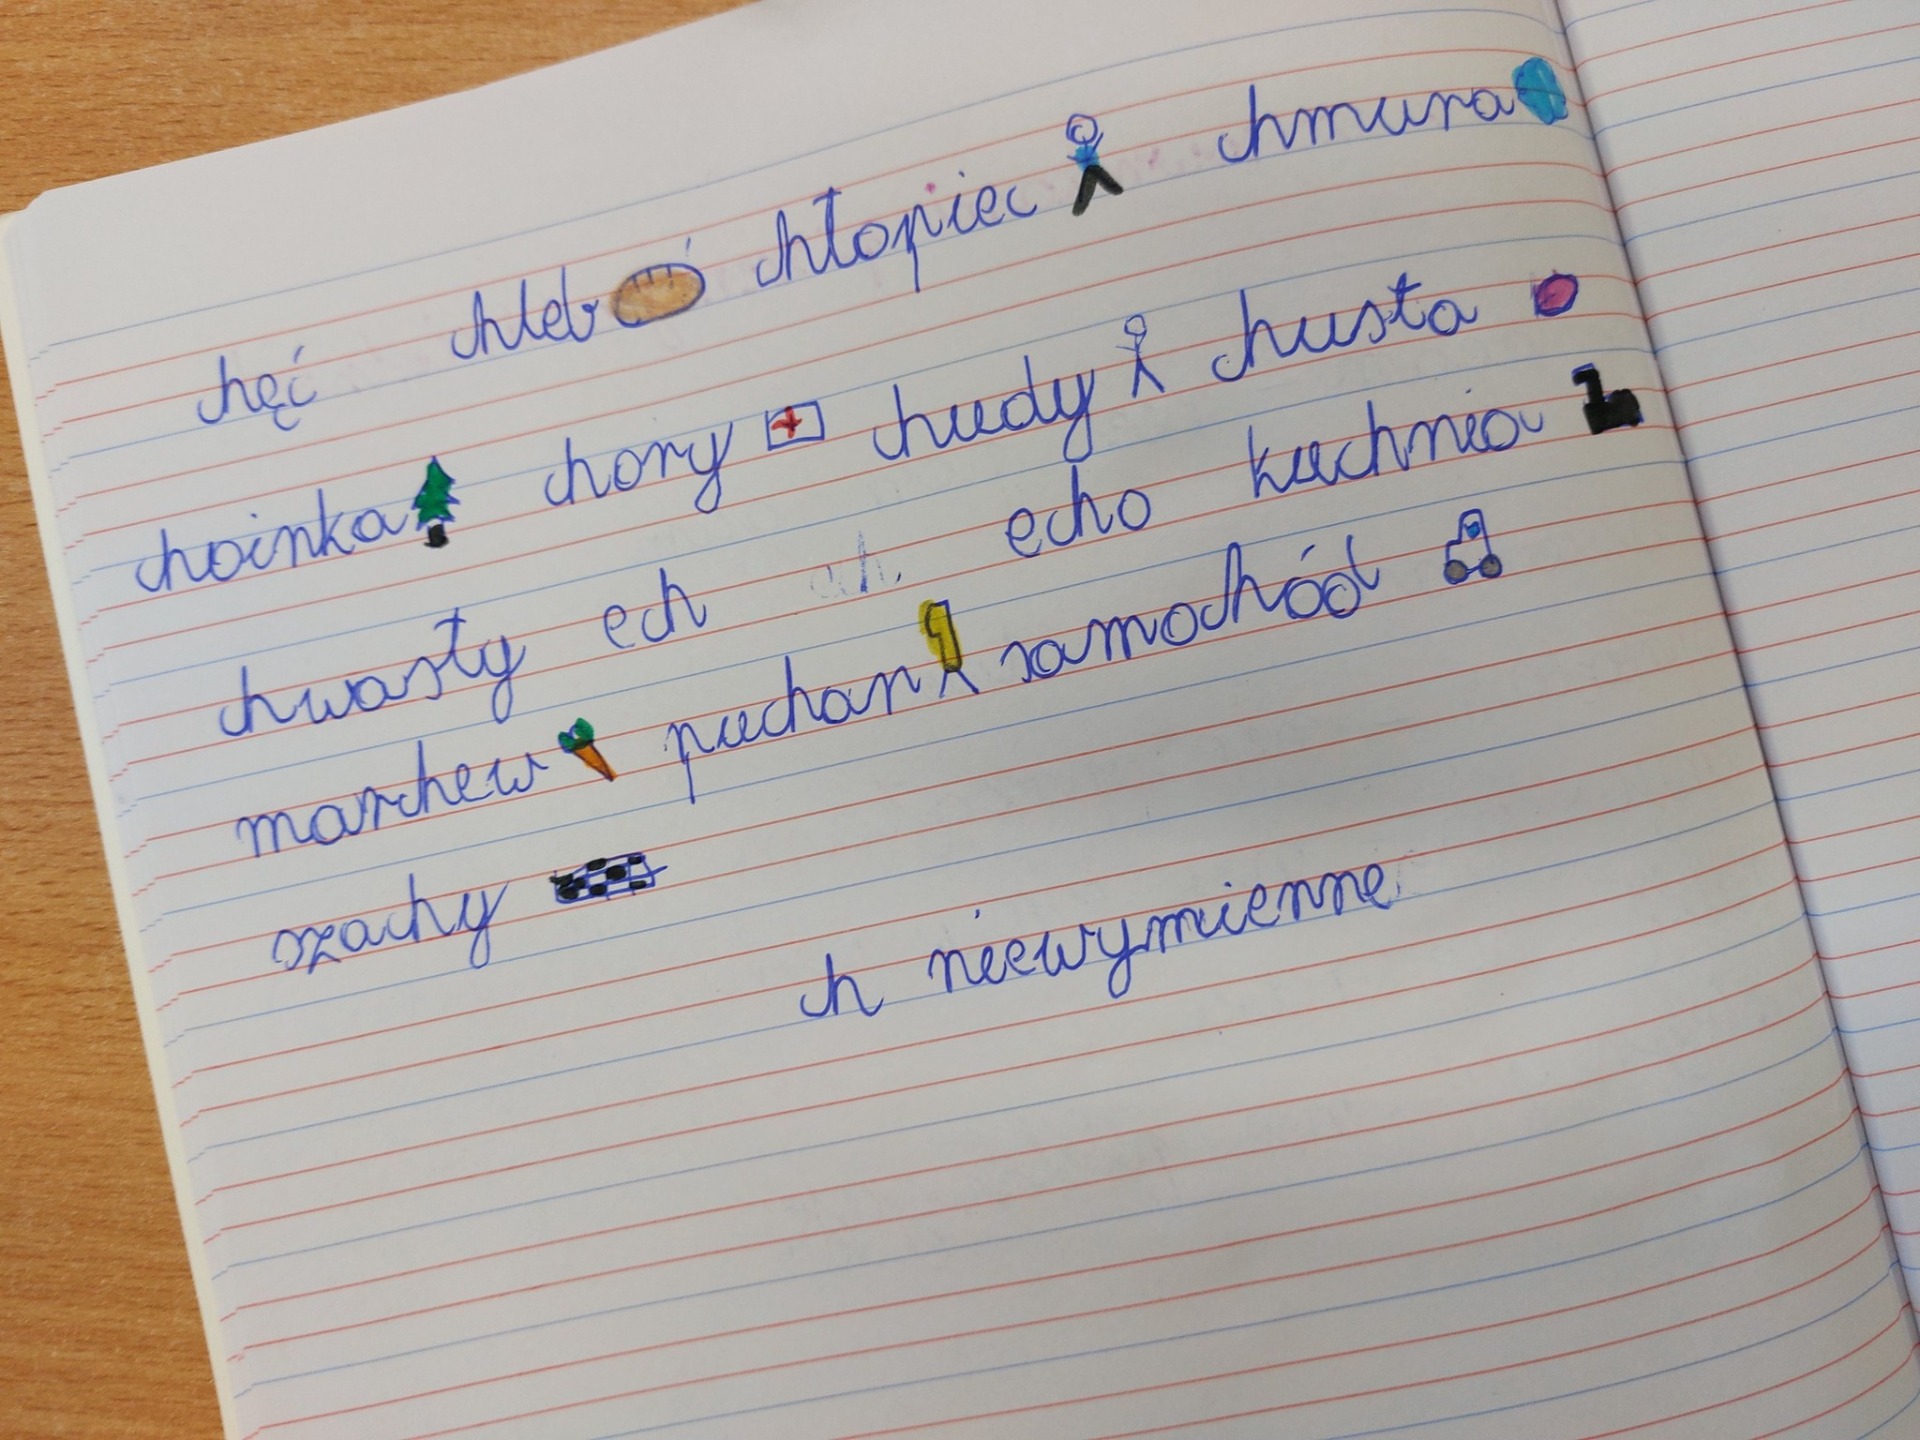 chęć chleb chłopiec chmura
choinka chory chudy chusta
chwasty ech echo kuchnia
marchew puchar samochód
szachy
ch niewymienne